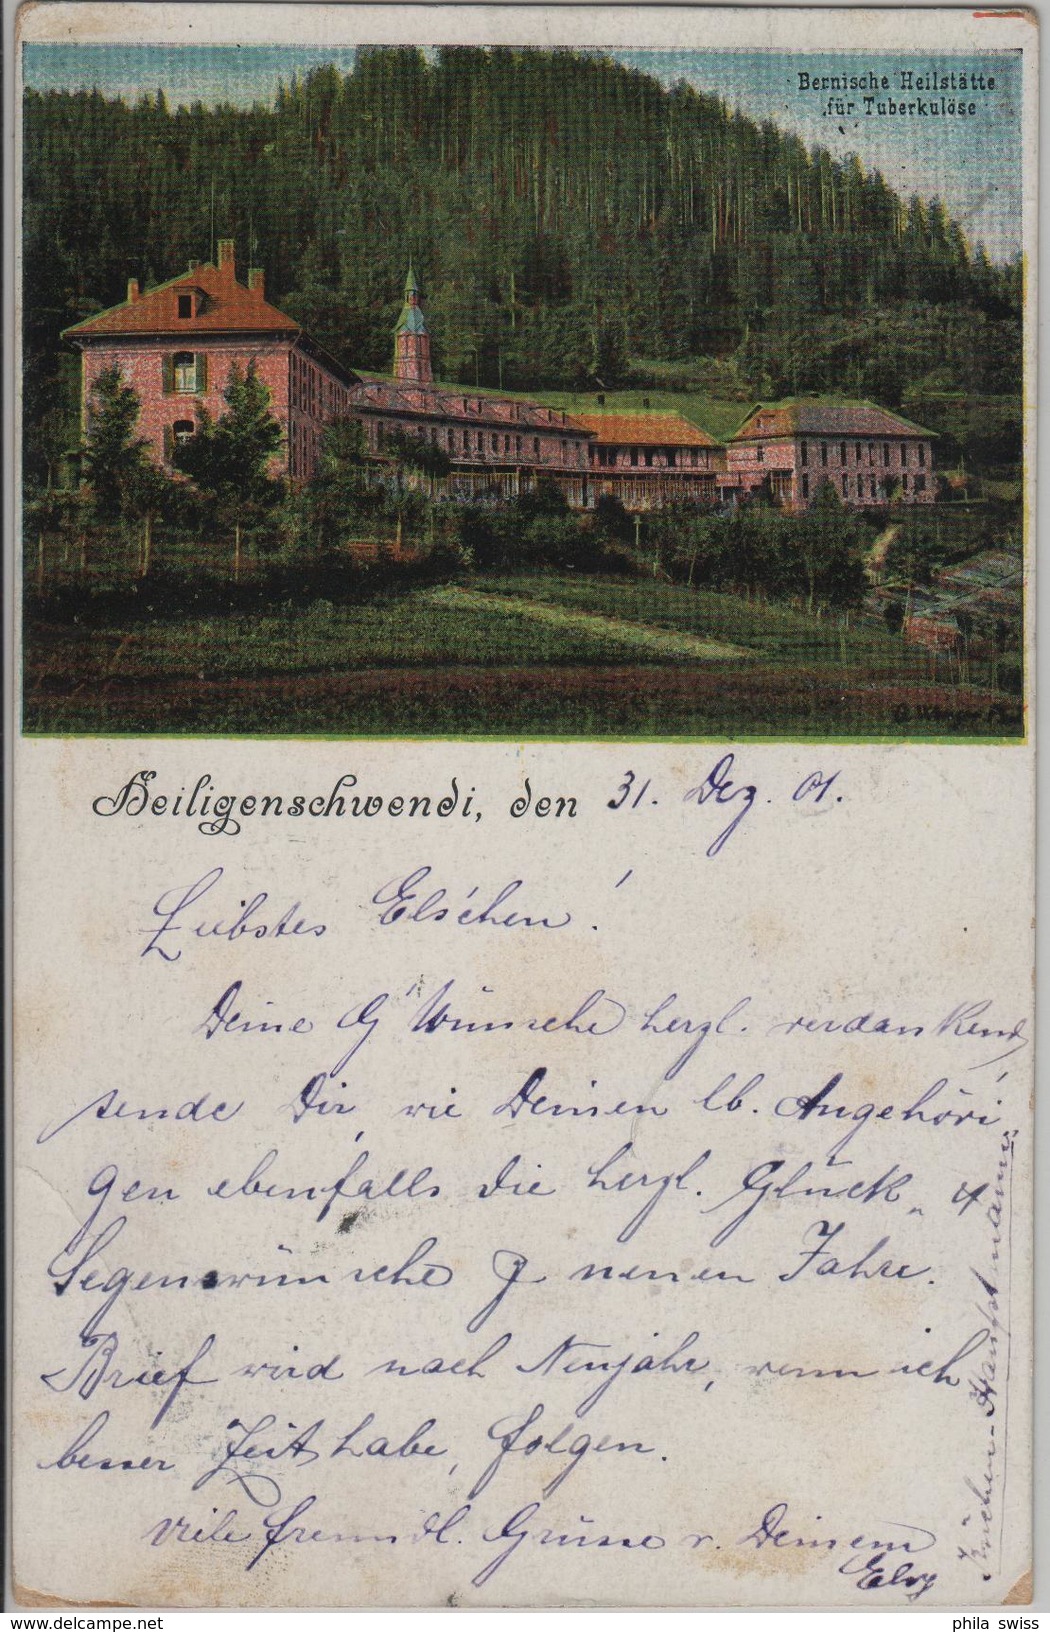 Bernische Heilstätte
für Tuberkulöse
Heiligenschwendi, den 31. Dez. 01.
Liebstes Els'chen!
Deine G'Wünsche herzl. verdankend
sende Dir, wie Deinen lb. Angehöri-
gen ebenfalls die herzl. Glück- &
Segenswünsche z. neuen Jahre.
Brief wird nach Neujahr, wenn ich
besser Zeit habe, folgen.
Viele freundl. Grüsse v. Deinem
phila swiss